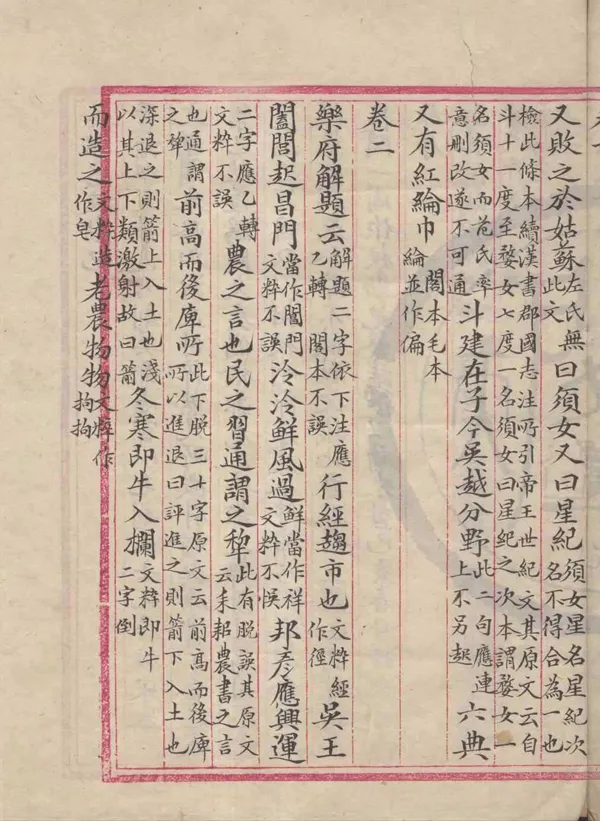 又敗之於姑蘇左氏無此文曰須女又曰星紀須女星名星紀次名不得合為一也
檢此條本續漢書郡國志注所引帝王世紀文其原文云自斗十一度至婺女七度一名須女曰星紀之次本謂婺女一
名須女而范氏率意刪改遂不可通斗建在子今吳越分野此二句應連上不另起六典
又有紅綸巾閣本毛本綸並作偏
卷二
樂府解題云解題二字依下注應乙轉閣本不誤行經趨市也文粹經作徑吳王
闔閭起昌門當作閶門文粹不誤泠泠鮮風過鮮當作祥文粹不悮邦彥應興運
二字應乙轉文粹不誤農之言也民之習通謂之犂此有脫誤其原文云耒耜農書之言
也通謂之犂前高而後庳所此下脫三十字原文云前高而後庳所以進退曰評進之則箭下入土也
深退之則箭上入土也淺以其上下類激射故曰箭冬寒即牛入欄文粹即牛二字倒
而造之文粹造作皂老農物物文粹作拘拘